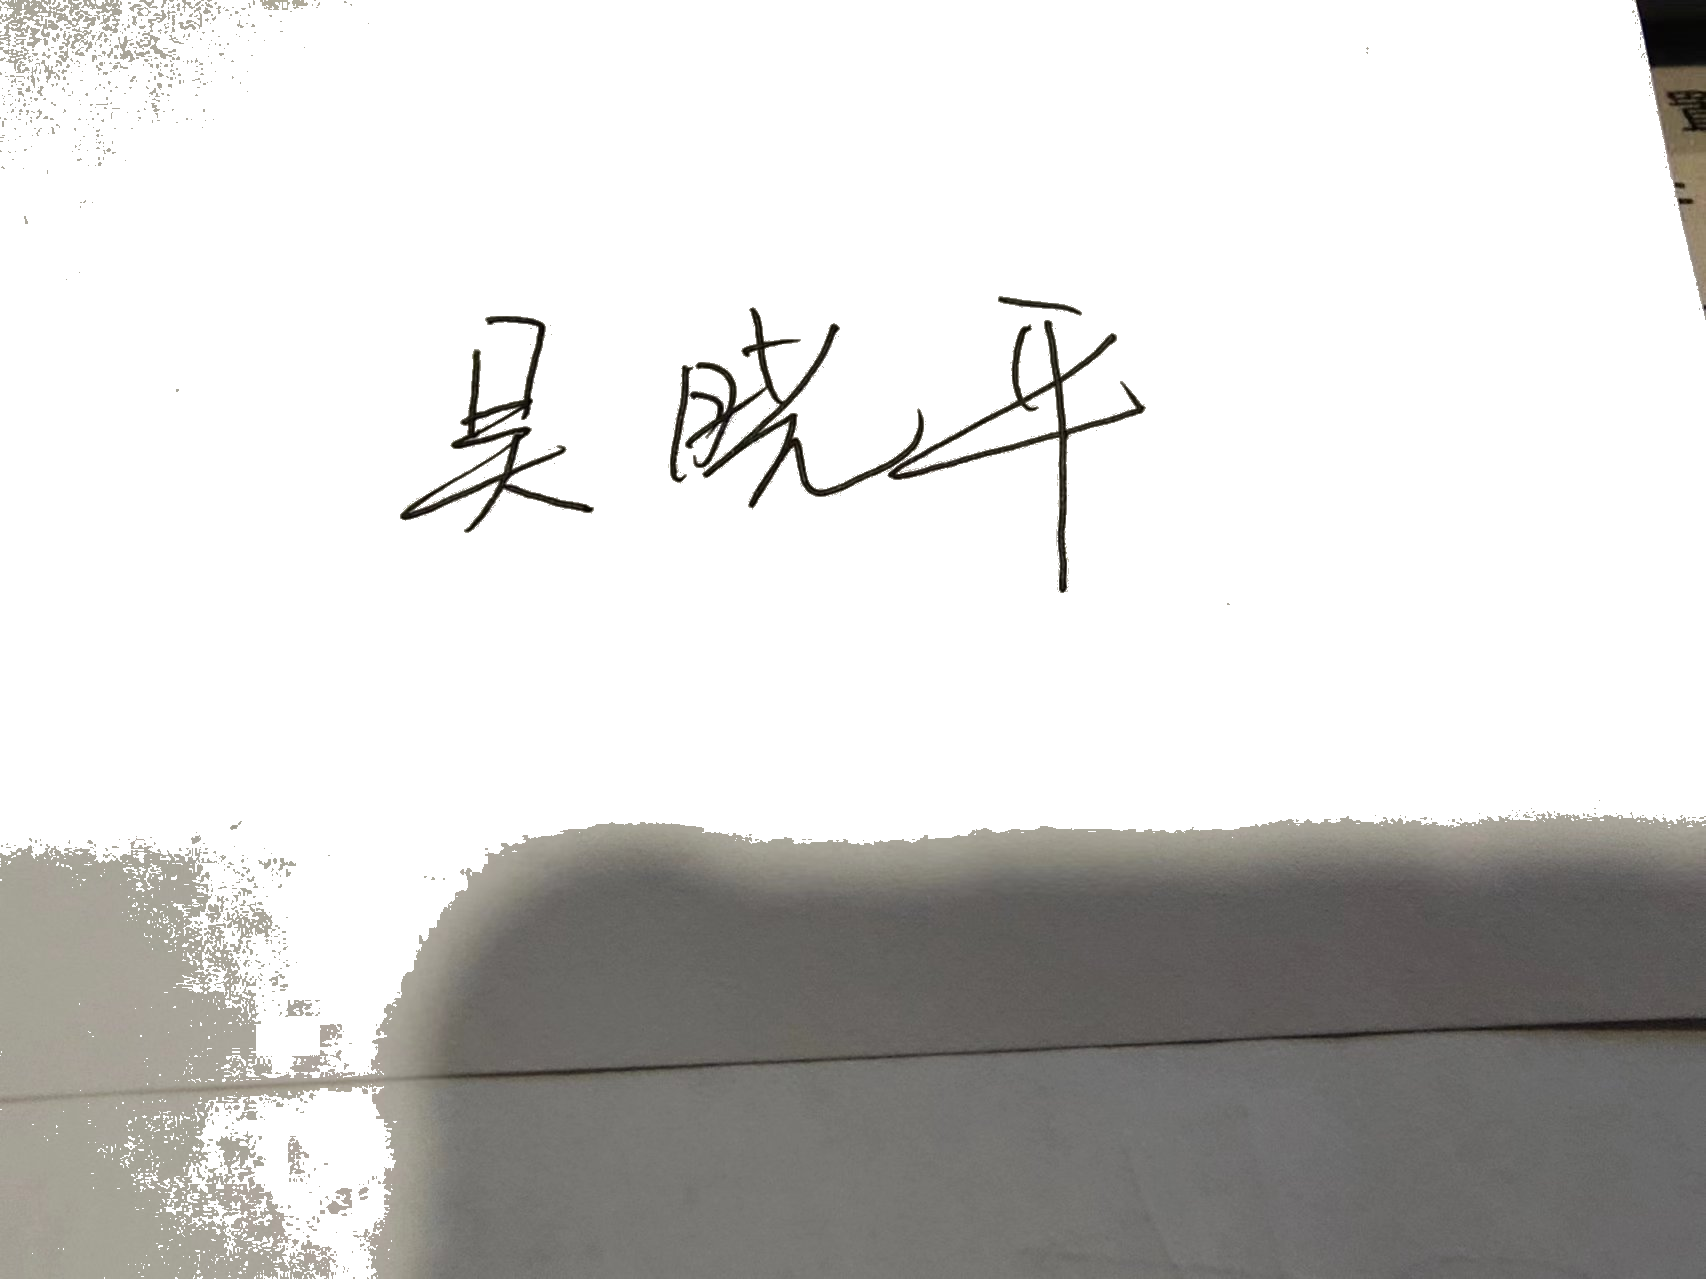 吴晓平